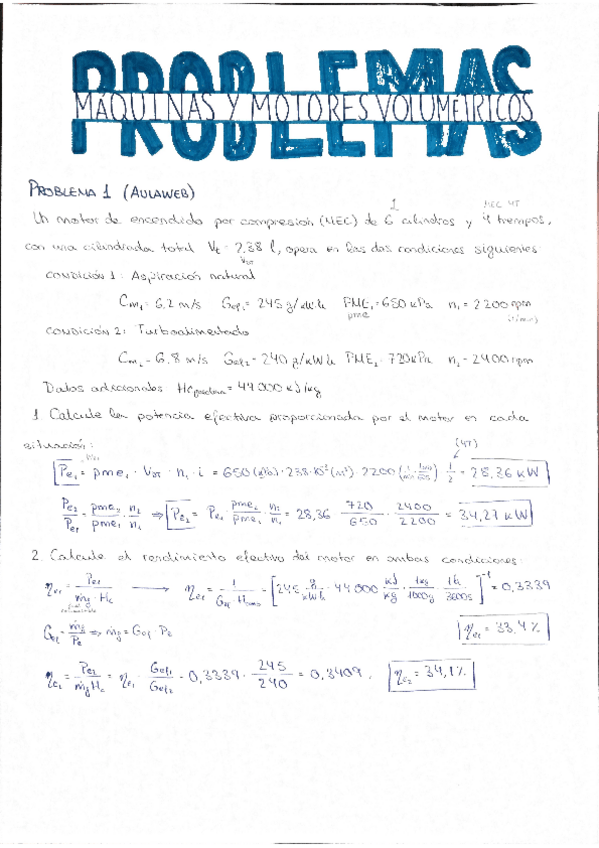 PROBLEMAS
MÁQUINAS Y MOTORES VOLUMÉTRICOS
PROBLEMA 1 (AULAWEB)
1 MEC 4T
Un motor de encendido por compresión (MEC) de 6 cilindros y 4 tiempos,
con una cilindrada total Vt = 2,38 l, opera en las dos condiciones siguientes:
VDT
condición 1: Aspiración natural
Cm1 = 6.2 m/s Gef1 = 245 g/kWh PME1 = 650 kPa n1 = 2200 rpm
pme
condición 2: Turboalimentado
Cm2 = 6.8 m/s Gef2 = 240 g/kWh PME2 = 720 kPa n2 = 2400 rpm
Datos adicionales: Hc = 44000 kJ/kg
1. Calcule la potencia efectiva proporcionada por el motor en cada
situación: (4T)
Pe1 = pme1 · VDT · n1 · i = 650 (kPa) · 2.38·10⁻³ (m³) · 2200 (1/min · 1min/60s) 1/2 = 28,36 kW
Pe2/Pe1 = pme2/pme1 · n2/n1 ⇒ Pe2 = Pe1 · pme2/pme1 · n2/n1 = 28,36 · 720/650 · 2400/2200 = 34,27 kW
2. Calcule el rendimiento efectivo del motor en ambas condiciones:
ηe1 = Pe1/ṁf·Hc → ηe1 = 1/Gef·H = [245 g/kWh · 44000 kJ/kg · 1kg/1000g · 1h/3600s]⁻¹ = 0,3339
Gef = ṁf/Pe ⇒ ṁf = Gef · Pe
ηe1 = 33,4%
ηe2 = Pe2/ṁf Hc = ηe1 · Gef1/Gef2 = 0,3339 · 245/240 = 0,3409. ηe2 = 34,1%